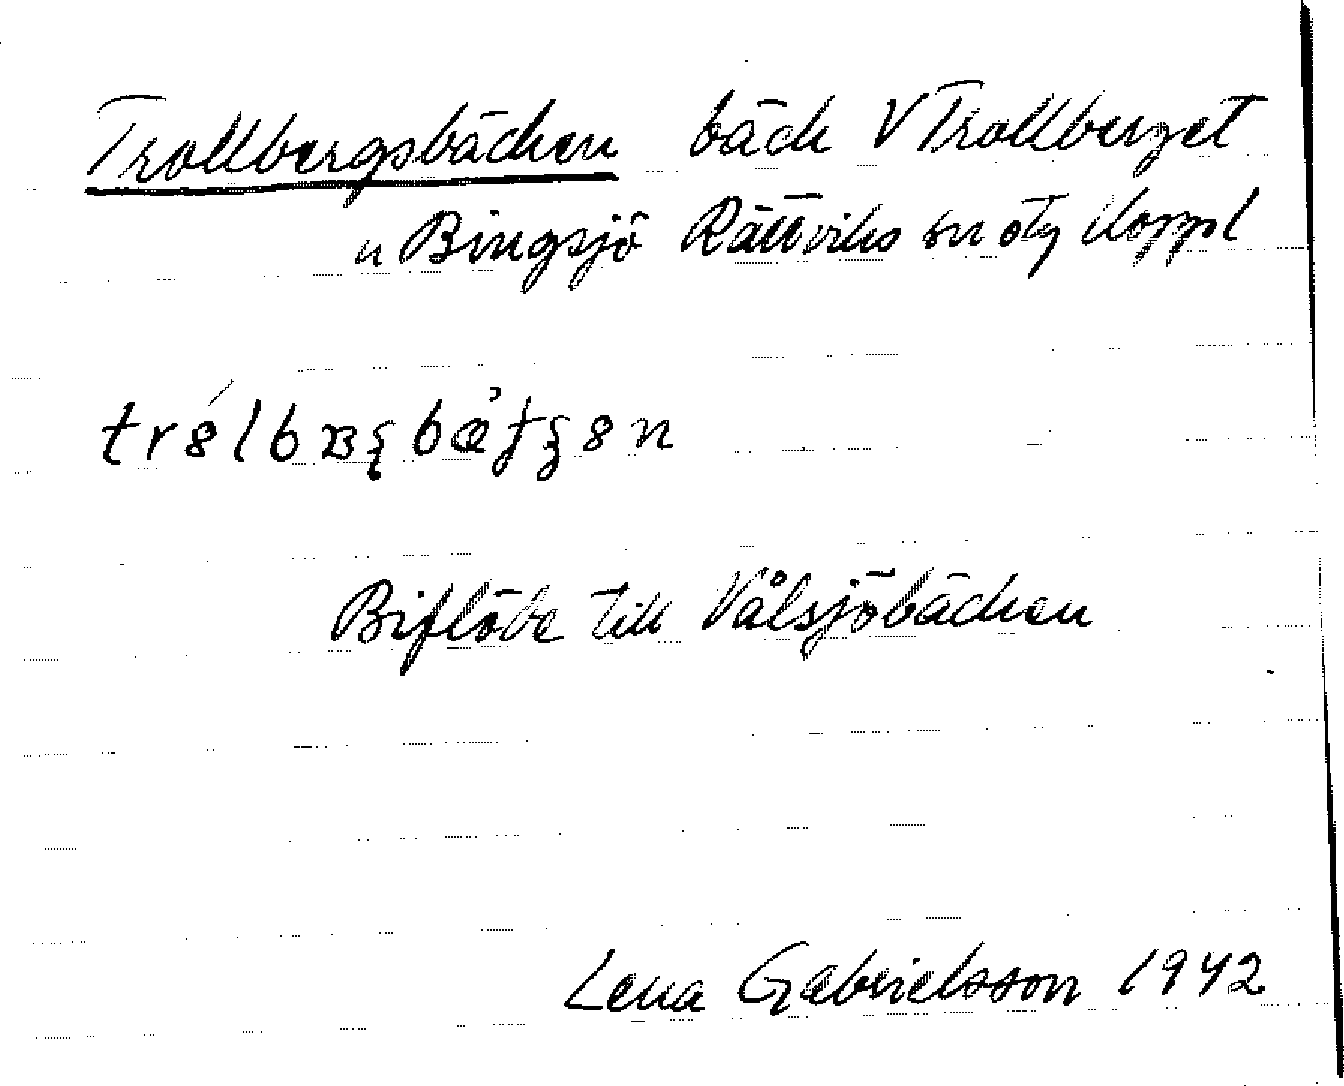 Trollbergsbäcken bäck V Trollberget
n Bingsjö Rättviks sn otg Koppl
Biflöde till Vålsjöbäcken
Lena Gabrielsson 1942